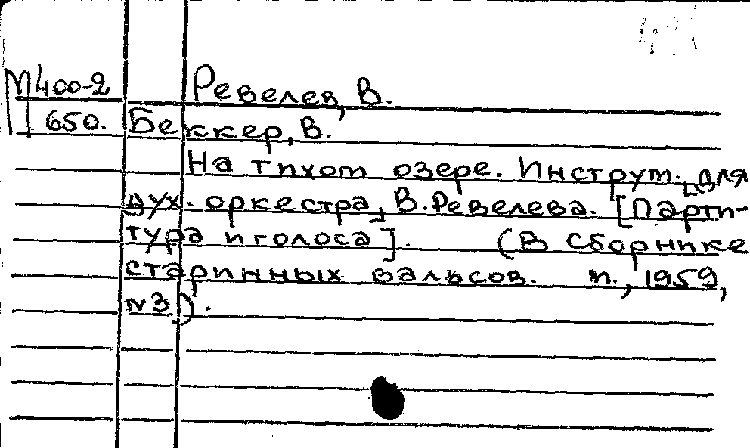 М400-2 Ревелев, В.
650. Беккер, В.
На тихом озере. Инструм. для
дух. оркестра, В. Ревелева. [Парти-
тура и голоса]. (В сборнике
старинных вальсов. М., 1959,
№3).